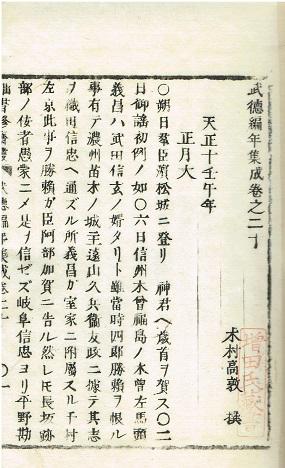 武德編年集成卷之二十
木村高敦 撰
天正十壬午年
正月大
〇朔日羣臣濱松城ニ登リ 神君ヘ歳首ヲ賀ス〇二
日御謡初例ノ如〇六日信州木曾福島ノ木曾左馬頭
義昌ハ武田信玄ノ婿タリト雖當時四郎勝頼ヲ恨ル
事有テ濃州苗木ノ城主遠山久兵衞友政ニ據テ其志
ヲ織田信忠ヘ通ズル所義昌ガ室家ニ附屬スル千村
左京此事ヲ勝頼ガ臣阿部加賀ニ告ル然レ𪜈長坂跡
部ノ佞者愚蒙ニメ是ヲ信ゼズ岐阜信忠ヨリ平野勘
武德編年集成卷二十
〇一